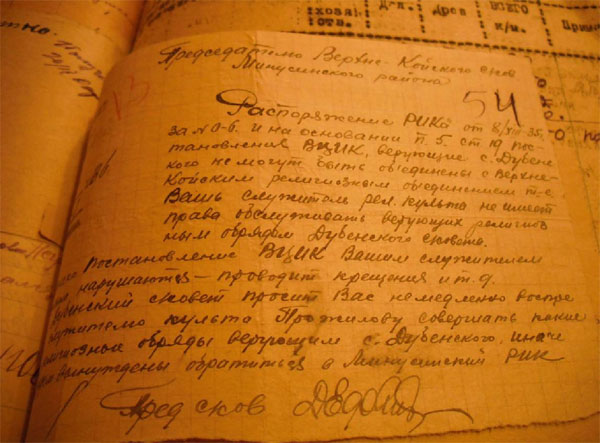 хозяй
отв.
Д-я.
Древ
ВСЕГО
к/м.
Прим
13
54
Председателю Верхне-Койского сков
Минусинского района
Распоряжение РИКа от 8/XII-35,
за № 0-6. и на основании п. 5. ст 19 пос-
тановления ВЦИК, верующие с. Дубен-
кого не могут быть объединены с Верхне-
Койским религиозным объединением т-е
Вашь служитель рел. культа не имеет
права обслуживать верующих религиоз
ным обрядом Дубенского сковета.
постановление ВЦИК Вашим служителем
нарушаются - проводит крещения и т.д.
сковет просит Вас немедленно воспре
служителю культа совершать какие
обряды верующим с. Дубенского, иначе
вынуждены обратиться в Минусинский РИК
Пред сков